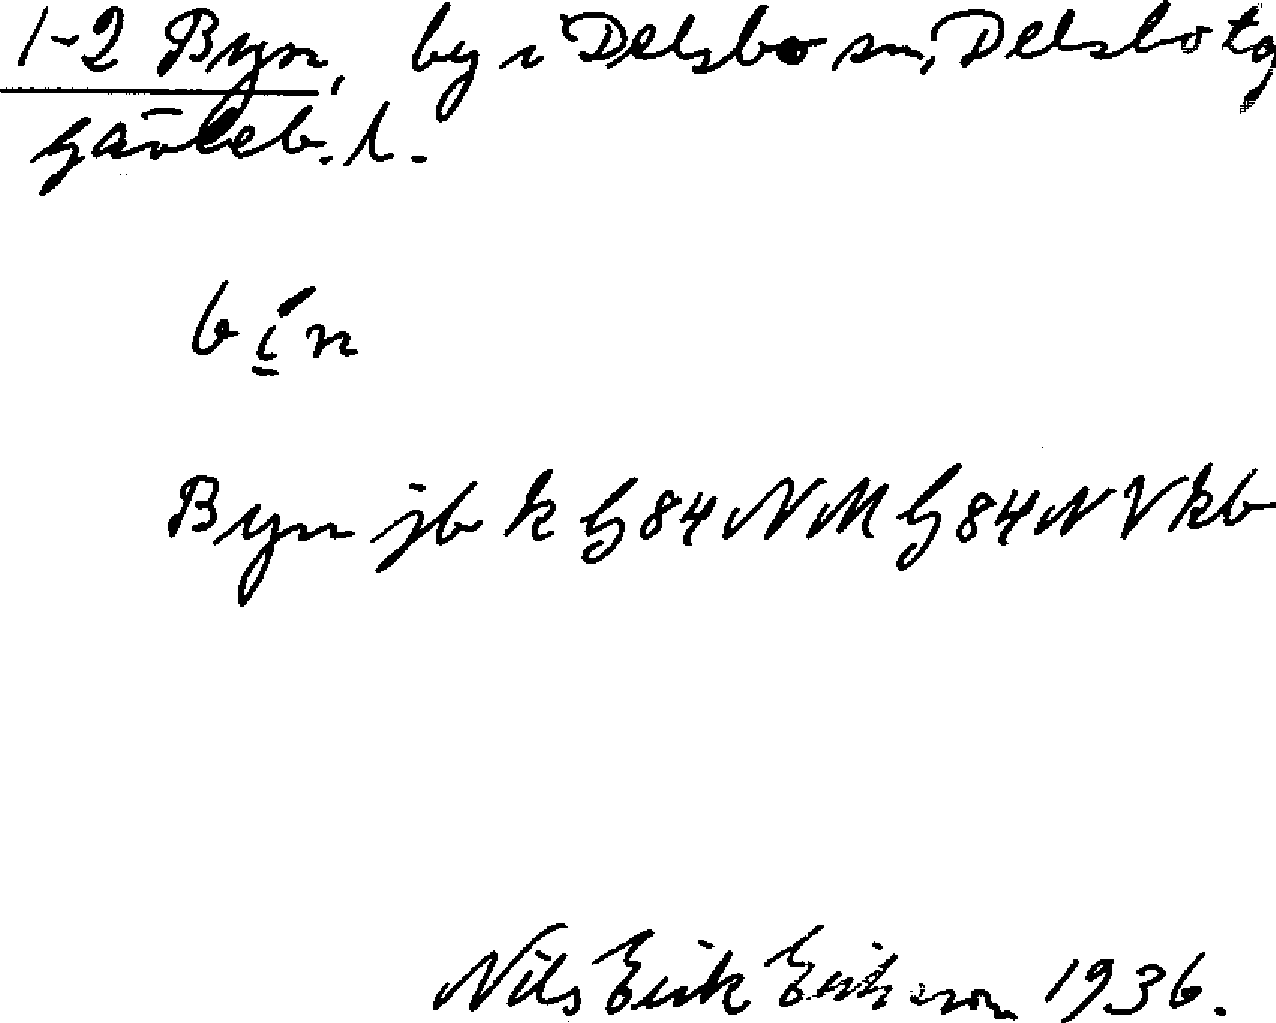 1-2 Byn, by i Delsbo sn, Delsbo tg
Gävleb. l.
bín
Byn jb k G84NM G84NV kb
Nils Erik Erikson 1936.